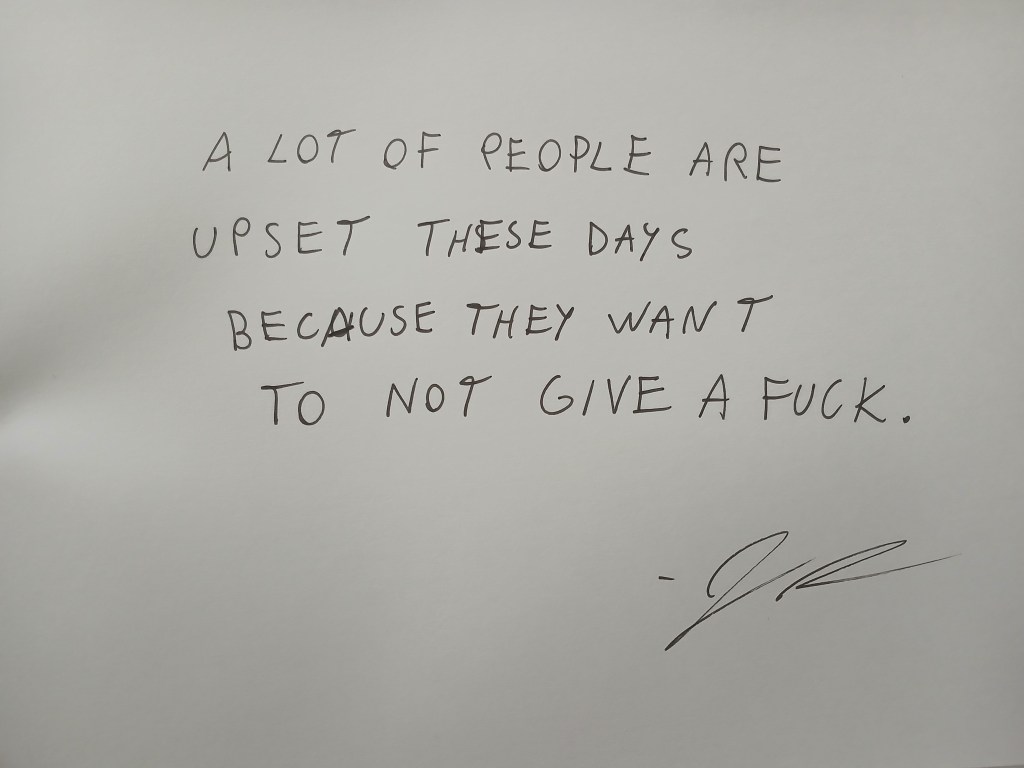 A LOT OF PEOPLE ARE
UPSET THESE DAYS
BECAUSE THEY WANT
TO NOT GIVE A FUCK.